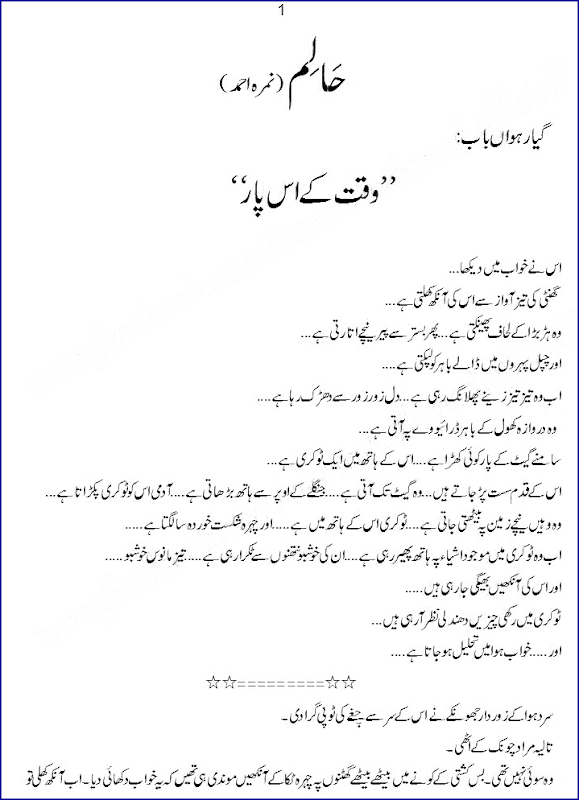 1
حَالِم (نمرہ احمد)
گیارہواں باب:
’’وقت کے اس پار‘‘
اس نے خواب میں دیکھا...
گھنٹی کی تیز آواز سے اس کی آنکھ کھلتی ہے...
وہ ہڑبڑا کے لحاف پھینکتی ہے... پھر بستر سے پیر نیچے اتارتی ہے...
اور چپل پہروں میں ڈالے باہر کو لپکتی ہے....
اب وہ تیز تیز زینے پھلانگ رہی ہے... دل زور زور سے دھڑک رہا ہے....
وہ دروازہ کھول کے باہر ڈرائیو وے پہ آتی ہے...
سامنے گیٹ کے پار کوئی کھڑا ہے.... اس کے ہاتھ میں ایک ٹوکری ہے...
اس کے قدم سست پڑ جاتے ہیں... وہ گیٹ تک آتی ہے.... جنگلے کے اوپر سے ہاتھ بڑھاتی ہے.... آدمی اس کو ٹوکری پکڑاتا ہے...
وہ وہیں نیچے زمین پہ بیٹھتی جاتی ہے.... ٹوکری اس کے ہاتھ میں ہے..... اور چہرہ شکست خوردہ سا لگتا ہے.....
اب وہ ٹوکری میں موجود اشیاء پہ ہاتھ پھیر رہی ہے.... ان کی خوشبو نتھنوں سے ٹکرا رہی ہے..... تیز مانوس خوشبو.....
اور اس کی آنکھیں بھیگی جا رہی ہیں.....
ٹوکری میں رکھی چیزیں دھندلی نظر آ رہی ہیں...
اور..... خواب ہوا میں تحلیل ہو جاتا ہے....
☆☆=========☆☆
سرد ہوا کے زوردار جھونکے نے اس کے سر سے چغے کی ٹوپی گرا دی۔
تالیہ مراد چونک کے اٹھی۔
وہ سوئی نہیں تھی۔ بس کشتی کے کونے میں بیٹھے بیٹھے گھٹنوں پہ چہرہ ٹکا کے آنکھیں موندی ہی تھیں کہ یہ خواب دکھائی دیا۔ اب آنکھ کھلی تو